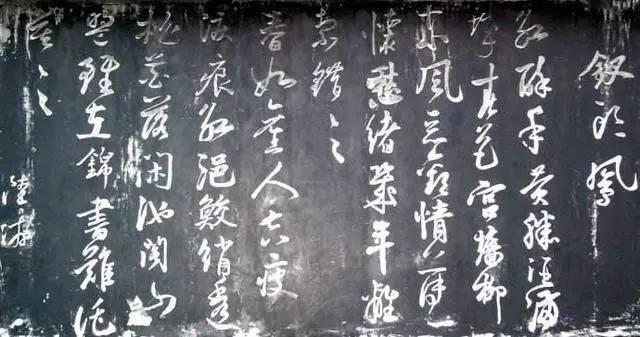 釵頭鳳
紅酥手黃縢酒滿
城春色宮牆柳
東風惡歡情薄一
懷愁緒幾年離
索錯々々
春如舊人空瘦
淚痕紅浥鮫綃透
桃花落閑池閣山
盟雖在錦書難託
莫々々
陸游